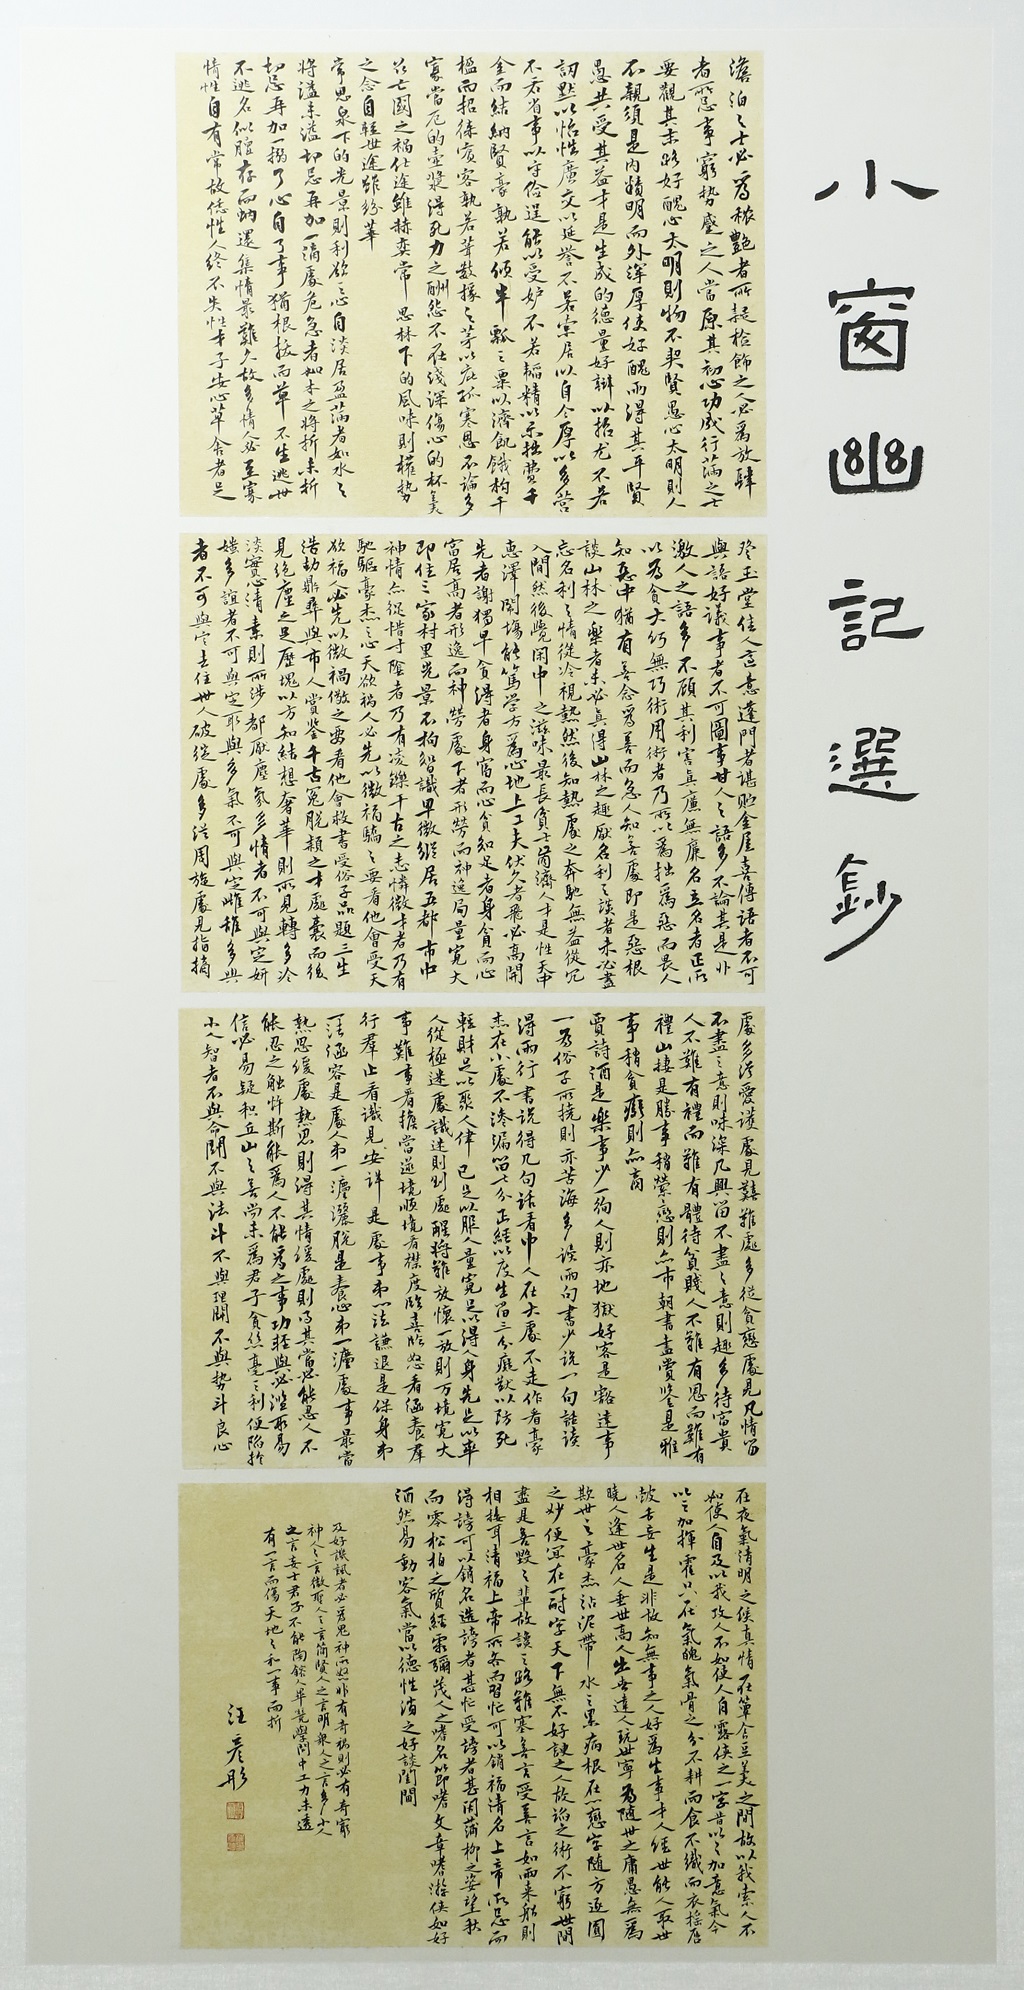 小窗幽記選鈔
澹泊之士必為穠艷者所疑檢飾之人必為放肆
者所忌事窮勢蹙之人當原其初心功成行滿之士
要觀其末路好醜心太明則物不契賢愚心太明則人
不親須是內精明而外渾厚使好醜兩得其平賢
愚共受其益才是生成的德量好辯以招尤不若
訒默以怡性廣交以延譽不若索居以自全厚以多營
不若省事以守儉逞能以受妒不若韜精以示拙費千
金而結納賢豪孰若傾半瓢之粟以濟飢餓構千
楹而招徠賓客孰若葺數椽之茅以庇孤寒恩不論多
寡當厄的壺漿得死力之酬怨不在淺深傷心的杯羹
召亡國之禍仕途雖赫奕常思林下的風味則權勢
之念自輕世途雖紛華
常思泉下的光景則利欲之心自淡居盈滿者如水之
將溢未溢切忌再加一滴處危急者如木之將折未折
切忌再加一搦了心自了事猶根拔而草不生逃世
不逃名似膻存而蚋還集情最難久故多情人必至寡
情性自有常故任性人終不失性才子安心草舍者足
登玉堂佳人適意蓬門者堪貯金屋喜傳語者不可
與語好議事者不可圖事甘人之語多不論其是非
激人之語多不顧其利害真廉無廉名立名者正所
以為貪大巧無巧術用術者乃所以為拙為惡而畏人
知惡中猶有善念為善而急人知善處即是惡根
談山林之樂者未必真得山林之趣厭名利之談者未必盡
忘名利之情從冷視熱然後知熱處之奔馳無益從冗
入閒然後覺閒中之滋味最長貧士肯濟人才是性天中
惠澤鬧場能篤學方為心地上工夫伏久者飛必高開
先者謝獨早貪得者身富而心貧知足者身貧而心
富居高者形逸而神勞處下者形勞而神逸局量寬大
即住三家村里光景不拘智識卑微縱居五都市中
神情亦促惜寸陰者乃有凌鑠千古之志憐微才者乃有
馳驅豪杰之心天欲禍人必先以微福驕之要看他會受天
欲福人必先以微禍儆之要看他會救書受俗子品題三生
浩劫鼎彝與市人賞鑒千古冤脫穎之才處囊而後
見絕塵之足歷塊以方知結想奢華則所見轉多冷
淡實心清素則所涉都厭塵氛多情者不可與定妍
媸多誼者不可與定取與多氣不可與定雌雄多興
者不可與定去住世人破綻處多從周旋處見指摘
處多從愛護處見艱難處多從貪戀處見凡情留
不盡之意則味深凡興留不盡之意則趣多待富貴
人不難有禮而難有體待貧賤人不難有恩而難有
禮山棲是勝事稍縈戀則亦市朝書畫賞鑒是雅
事稍貪癡則亦商
賈詩酒是樂事少一徇人則亦地獄好客是豁達事
一為俗子所撓則亦苦海多讀兩句書少說一句話讀
得兩行書說得幾句話看中人在大處不走作看豪
杰在小處不滲漏留七分正經以度生留三分癡獃以防死
輕財足以聚人律己足以服人量寬足以得人身先足以率
人從極迷處識迷則到處醒將難放懷一放則萬境寬大
事難事看擔當逆境順境看襟度臨喜臨怒看涵養群
行群止看識見安詳是處事第一法謙退是保身第
一法涵容是處人第一法灑脫是養心第一法處事最當
熟思緩處熟思則得其情緩處則得其當必能忍人不
能忍之觸忤斯能為人不能為之事功輕與必濫取易
信必易疑積丘山之善尚未為君子貪絲毫之利便陷於
小人智者不與命鬭不與法斗不與理鬭不與勢斗良心
在夜氣清明之候真情在簞食豆羹之間故以我索人不
如使人自反以我攻人不如使人自露俠之一字昔以之加意氣今
以之加揮霍只在氣魄氣骨之分不耕而食不織而衣搖唇
鼓舌妄生是非故知無事之人好為生事才人經世能人取世
曉人逢世名人垂世高人出世達人玩世寧為隨世之庸愚無為
欺世之豪杰沾泥帶水之累病根在一戀字隨方逐圓
之妙便宜在一耐字天下無不好諛之人故諂之術不窮世間
盡是善毀之輩故讒之路難塞善言受善言如兩來船則
相接耳清福上帝所吝而習忙可以銷福清名上帝所忌而
得謗可以銷名造謗者甚忙受謗者甚閒蒲柳之姿望秋
而零松柏之質經霜彌茂人之嗜名節嗜文章嗜游俠如好
酒然易動客氣當以德性消之好談閨閫
及好譏諷者必為鬼神所怒非有奇禍則必有奇窮
神人之言微聖人之言簡賢人之言明眾人之言多小人
之言妄士君子不能陶鎔人畢竟學問中工力未透
有一言而傷天地之和一事而折
汪彥彤